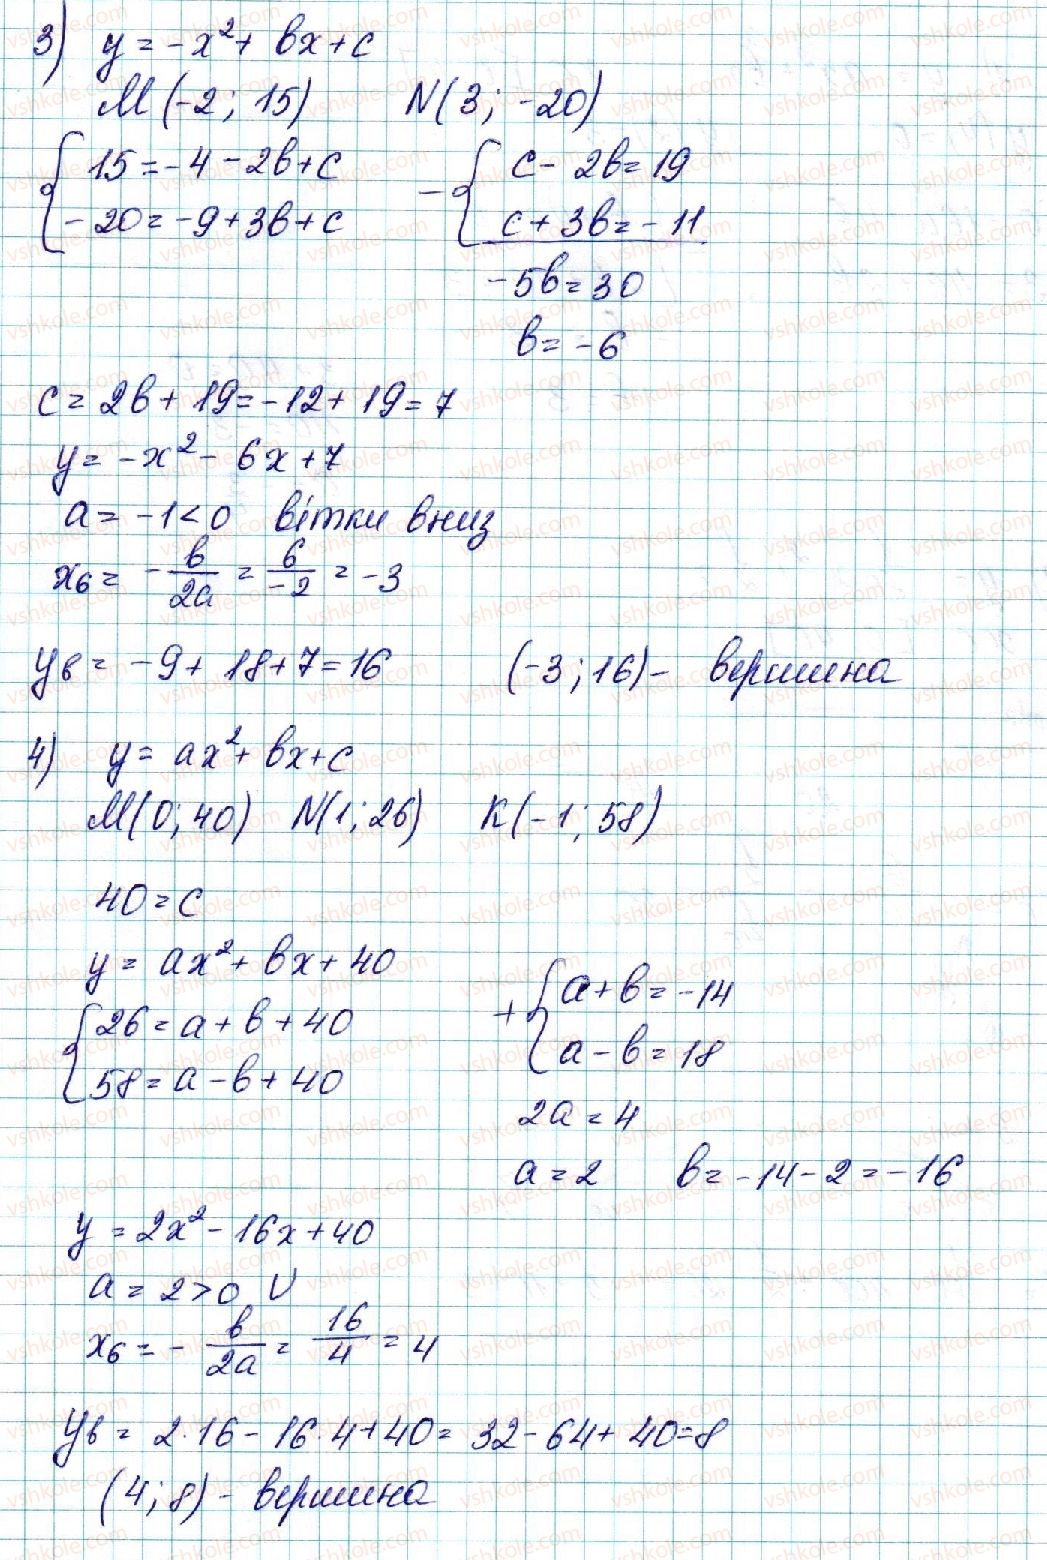 3) y = -x² + bx + c
M(-2; 15) N(3; -20)
{ 15 = -4 - 2b + c - { c - 2b = 19
-20 = -9 + 3b + c c + 3b = -11
-5b = 30
b = -6
c = 2b + 19 = -12 + 19 = 7
y = -x² - 6x + 7
a = -1 < 0 вітки вниз
xв = -b/2a = 6/-2 = -3
yв = -9 + 18 + 7 = 16 (-3; 16) - вершина
4) y = ax² + bx + c
M(0; 40) N(1; 26) K(-1; 58)
40 = c
y = ax² + bx + 40
{ 26 = a + b + 40 + { a + b = -14
58 = a - b + 40 a - b = 18
2a = 4
a = 2 b = -14 - 2 = -16
y = 2x² - 16x + 40
a = 2 > 0 U
xв = -b/2a = 16/4 = 4
yв = 2·16 - 16·4 + 40 = 32 - 64 + 40 = 8
(4; 8) - вершина
vshkole.com